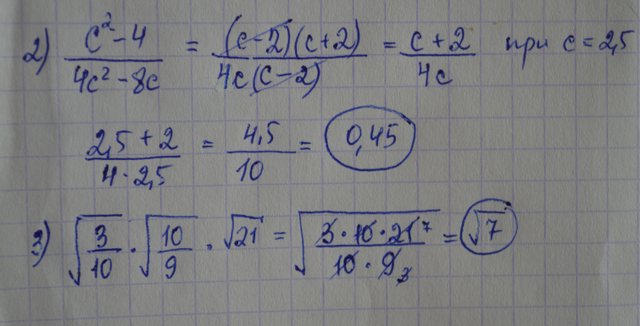 2) (c² - 4)/(4c² - 8c) = ((c-2)(c+2))/(4c(c-2)) = (c+2)/(4c) при c = 2,5
(2,5 + 2)/(4 · 2,5) = 4,5/10 = 0,45
3) √(3/10) · √(10/9) · √21 = √((3 · 10 · 21 7)/(10 · 9 3)) = √7